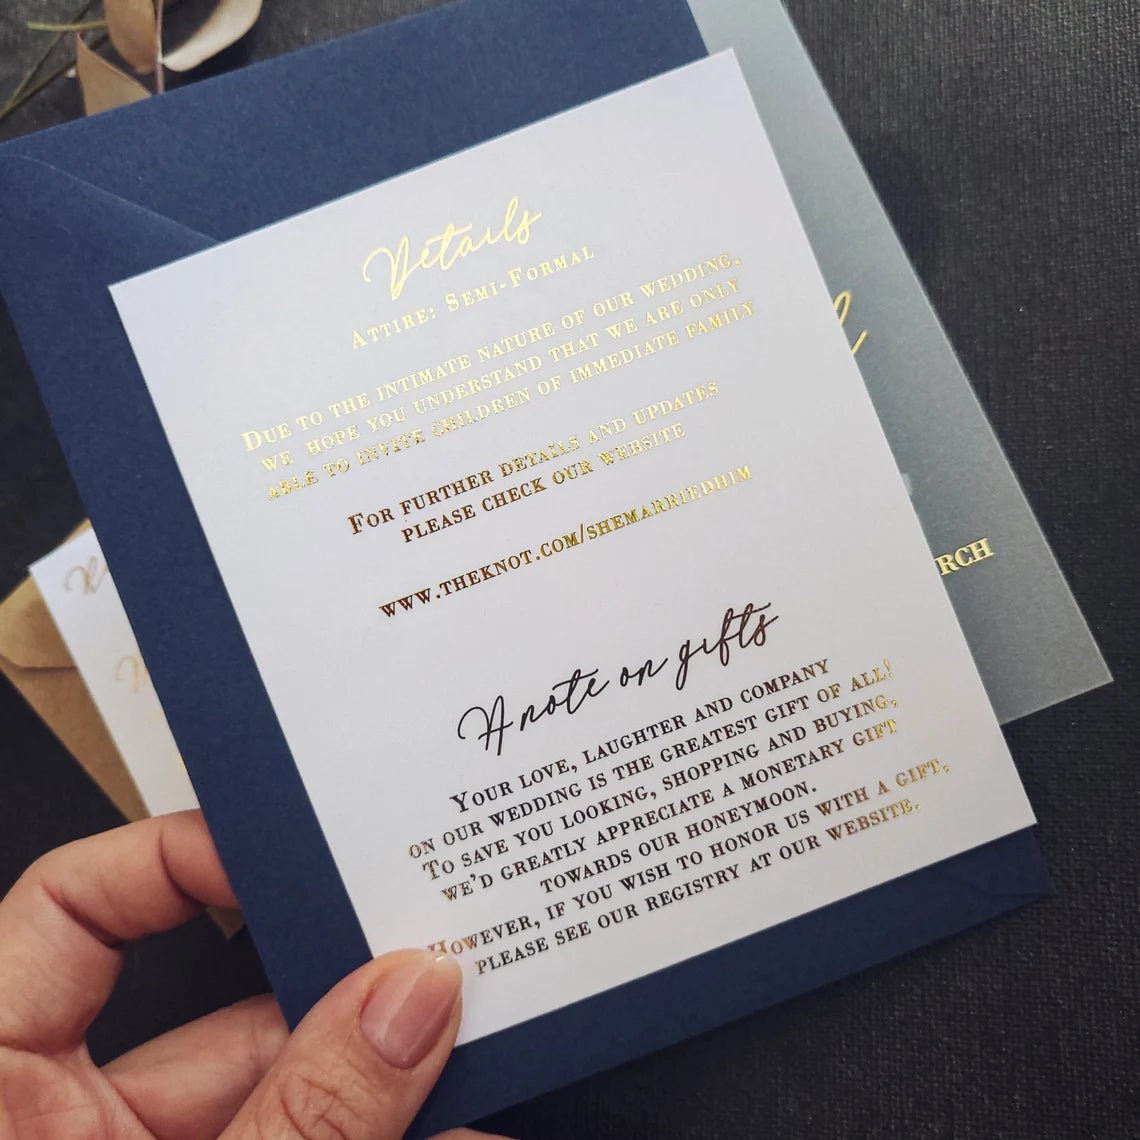 Details
ATTIRE: SEMI-FORMAL
DUE TO THE INTIMATE NATURE OF OUR WEDDING,
WE HOPE YOU UNDERSTAND THAT WE ARE ONLY
ABLE TO INVITE CHILDREN OF IMMEDIATE FAMILY
FOR FURTHER DETAILS AND UPDATES
PLEASE CHECK OUR WEBSITE
WWW.THEKNOT.COM/SHEMARRIEDHIM
A note on gifts
YOUR LOVE, LAUGHTER AND COMPANY
ON OUR WEDDING IS THE GREATEST GIFT OF ALL!
TO SAVE YOU LOOKING, SHOPPING AND BUYING,
WE'D GREATLY APPRECIATE A MONETARY GIFT
TOWARDS OUR HONEYMOON.
HOWEVER, IF YOU WISH TO HONOR US WITH A GIFT,
PLEASE SEE OUR REGISTRY AT OUR WEBSITE.
RCH